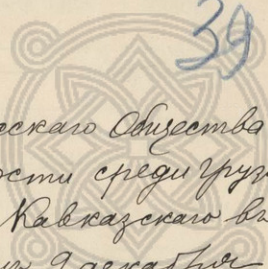 39
сскаго Общества
ости среди грузи
Кавказскаго въ
9 декабря